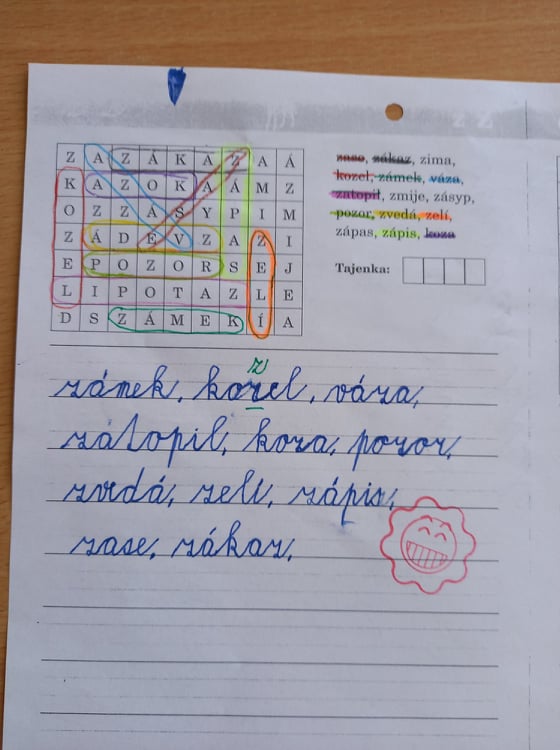 Z A Z Á K A Z A Á
K A Z O K A Á M Z
O Z Z Á S Y P I M
Z Á D E V Z A Z I
E P O Z O R S E J
L I P O T A Z L E
D S Z Á M E K Í A
zase, zákaz, zima,
kozel, zámek, váza,
zatopil, zmije, zásyp,
pozor, zvedá, zelí,
zápas, zápis, koza
Tajenka:
z
zámek, kozel, váza,
zatopil, koza, pozor,
zvedá, zelí, zápis,
zase, zákaz,